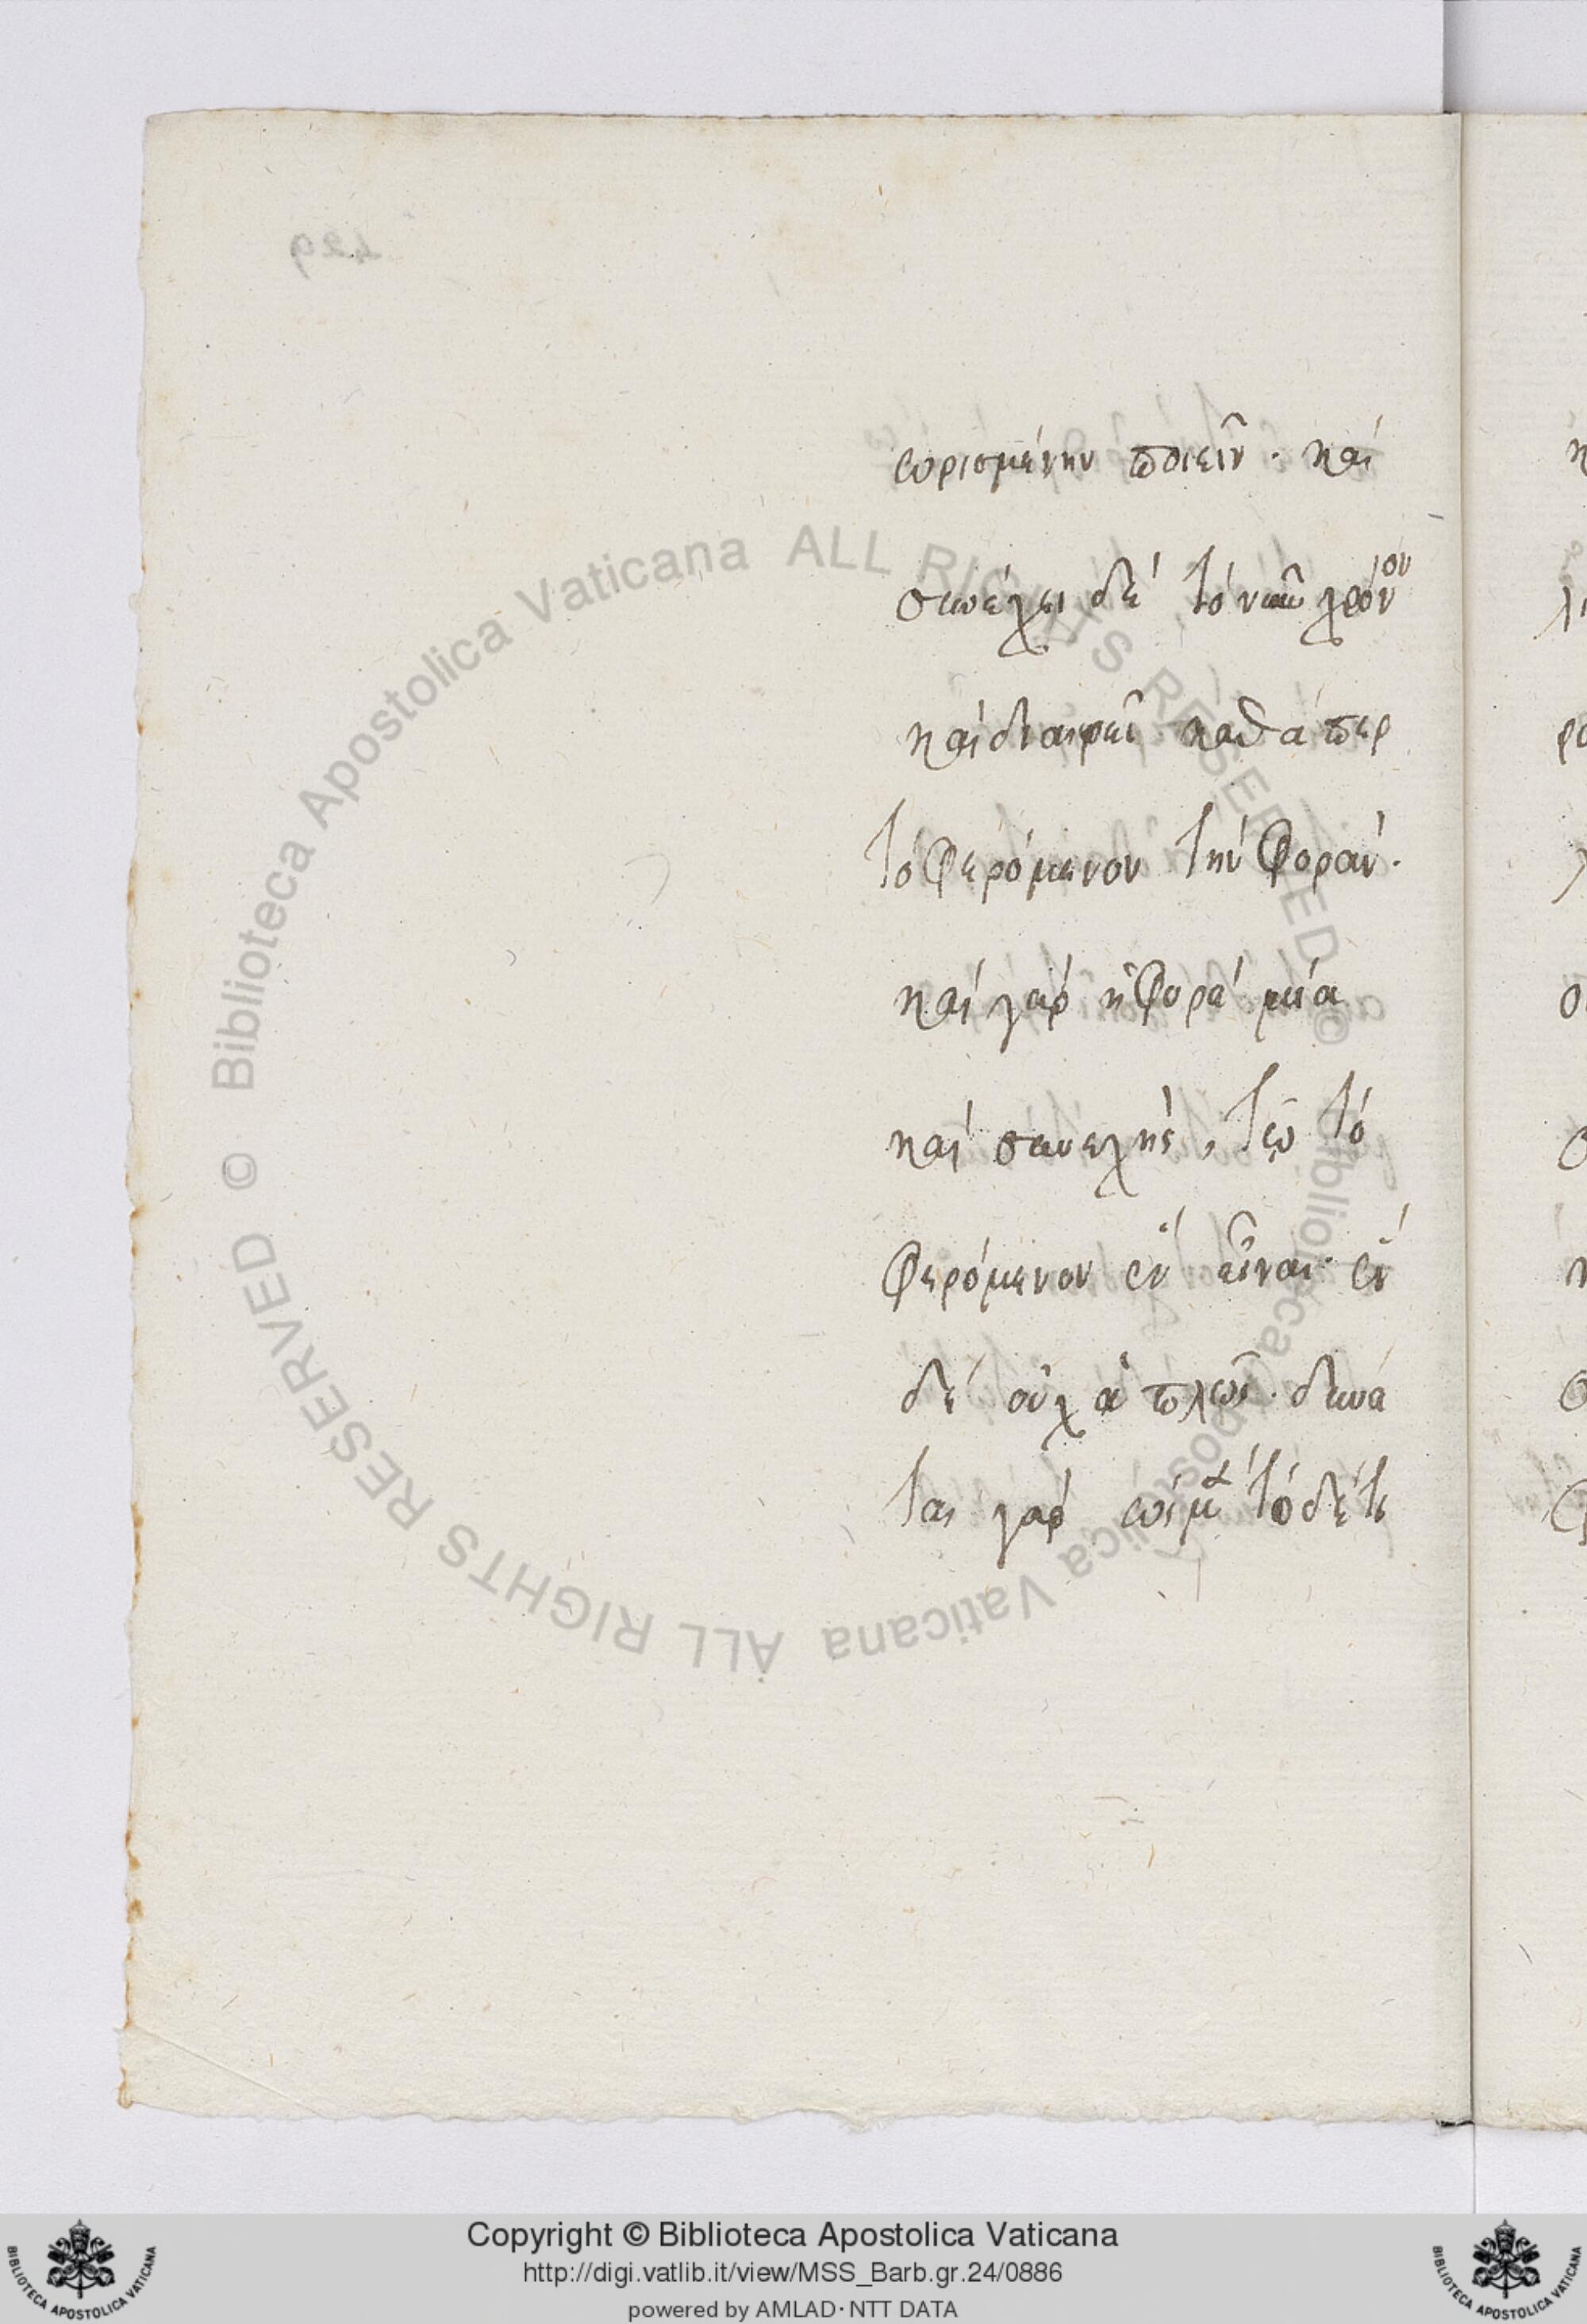 ὡρισμένην ποιεῖν· καὶ
συνέχει δὲ τὸ νῦν χρόνον
καὶ διαιρεῖ καθάπερ
τὸ φερόμενον τὴν φοράν·
καὶ γὰρ ἡ φορὰ μία
καὶ συνεχὴς, τῷ τὸ
φερόμενον ἓν εἶναι· ἓν
δὲ οὐχ ἁπλῶς· δύνα
ται γὰρ τόδε τε
429
© Biblioteca Apostolica Vaticana ALL RIGHTS RESERVED © Biblioteca Apostolica Vaticana ALL RIGHTS RESERVED
Copyright © Biblioteca Apostolica Vaticana
http://digi.vatlib.it/view/MSS_Barb.gr.24/0886
powered by AMLAD·NTT DATA
BIBLIOTECA APOSTOLICA VATICANA
BIBLIOTECA APOSTOLICA VATICANA